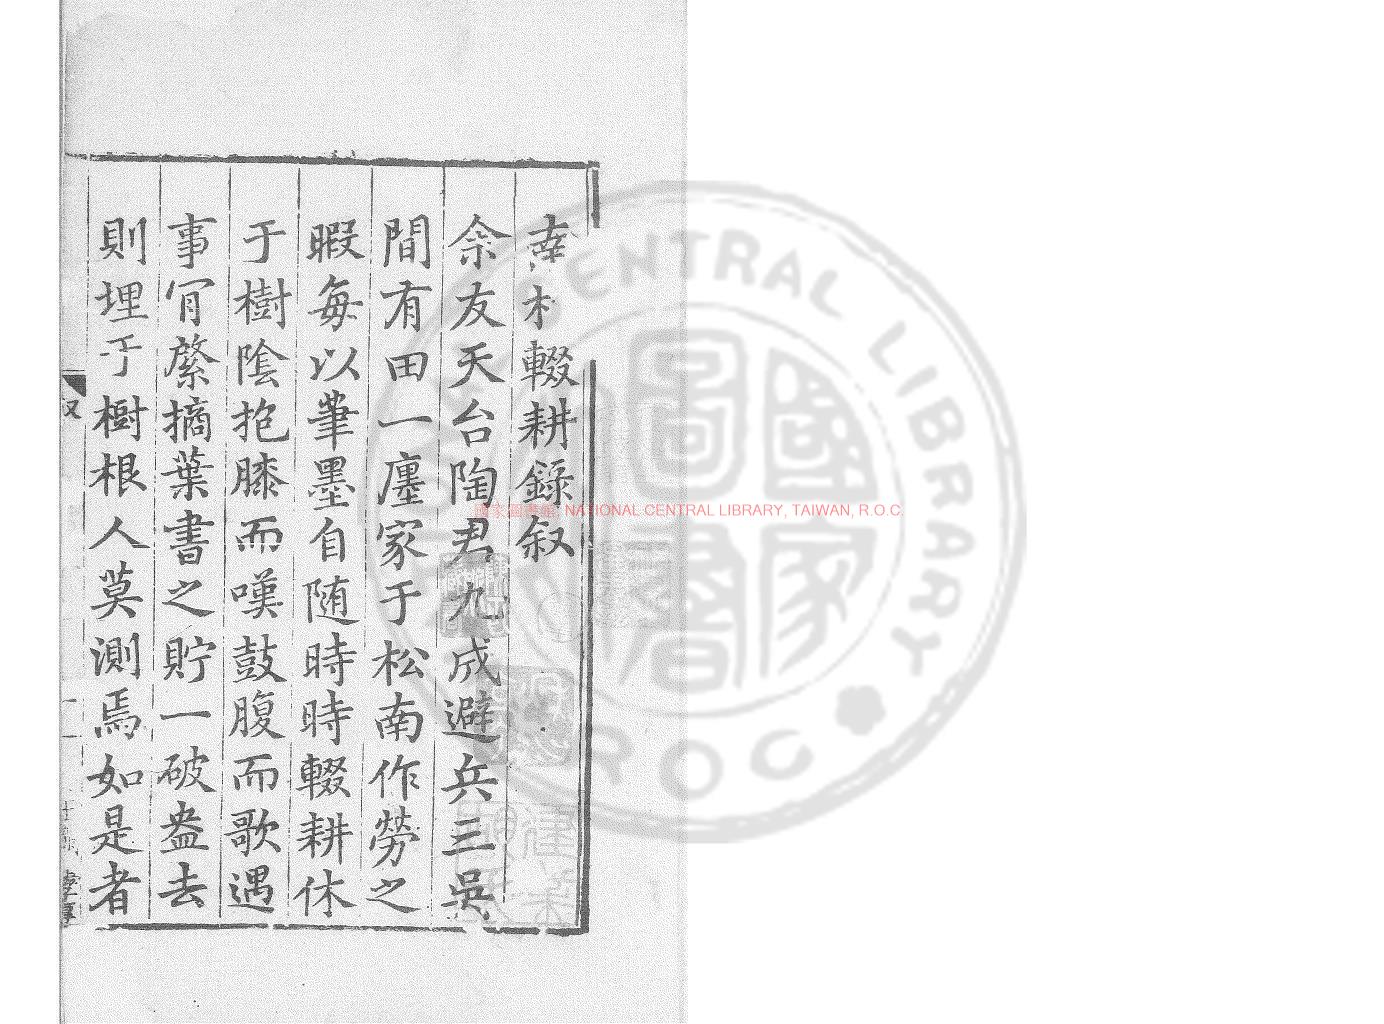 南村輟耕錄叙
余友天台陶君九成避兵三吳
間有田一廛家于松南作勞之
暇每以筆墨自随時時輟耕休
于樹陰抱膝而嘆鼓腹而歌遇
事肎綮摘葉書之貯一破盎去
則埋于樹根人莫測焉如是者
叙
一
NATIONAL CENTRAL LIBRARY, TAIWAN, R.O.C.
國家圖書館
CENTRAL LIBRARY
ROC